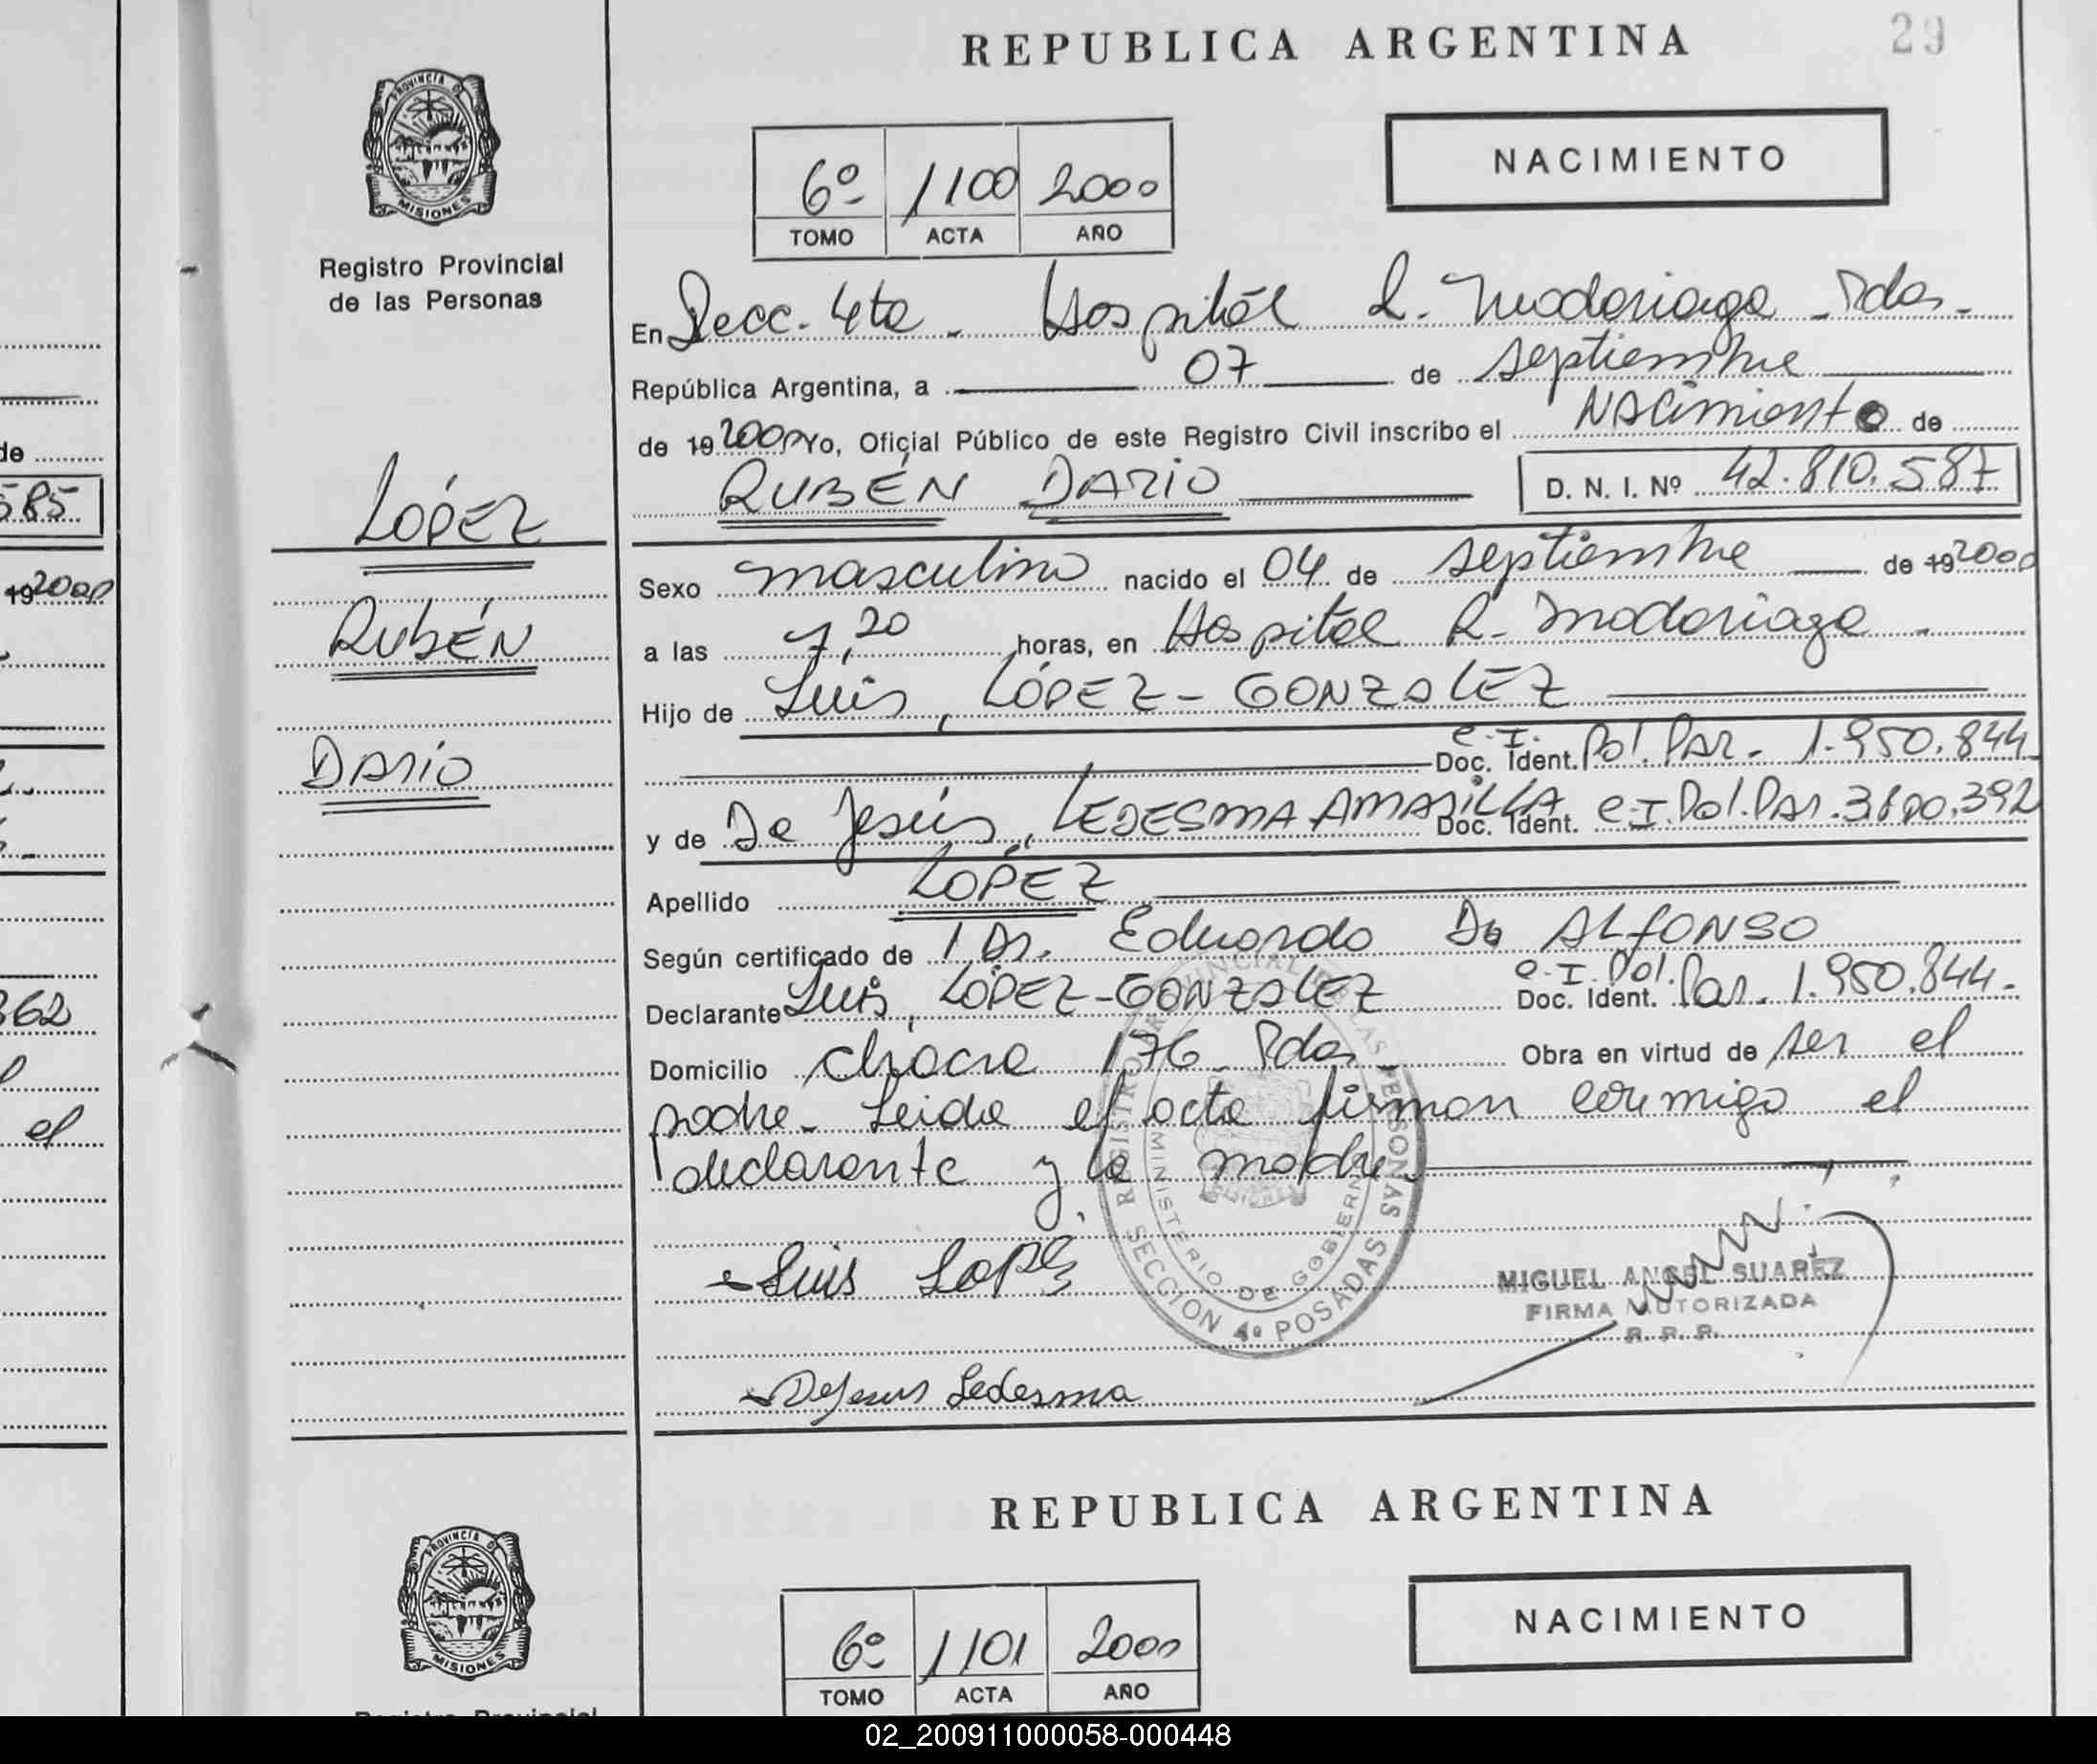 REPUBLICA ARGENTINA
29
PROVINCIA DE
MISIONES
Registro Provincial
de las Personas
6º 1100 2000
TOMO ACTA AÑO
NACIMIENTO
En Secc. 4ta - Hospital R. Madariaga - Pdas -
República Argentina, a 07 de septiembre
de 19 2000 Yo, Oficial Público de este Registro Civil inscribo el Nacimiento de
RUBÉN DARIO D. N. I. Nº 42.810.587
LÓPEZ
RUBÉN
DARIO
Sexo masculino nacido el 04 de septiembre de 19 2000
a las 7,20 horas, en Hospital R. Madariaga -
Hijo de Luis, LÓPEZ - GONZALEZ
Doc. Ident. C.I. Pol. Par. 1.950.844
y de De Jesús, LEDESMA AMARILLA Doc. Ident. C.I. Pol. Par. 3.890.392
Apellido LOPEZ
Según certificado de 1 Dr. Eduardo D. ALFONSO
Declarante Luis, LÓPEZ-GONZALEZ Doc. Ident. C.I. Pol. Par. 1.950.844.
Domicilio chacra 176 Pdas Obra en virtud de ser el
padre. Leida el acta firman conmigo el
declarante y la madre.
REGISTRO PROVINCIAL DE LAS PERSONAS
MINISTERIO DE GOBIERNO
SECCION 4º POSADAS
Luis Lopez
MIGUEL ANGEL SUAREZ
FIRMA AUTORIZADA
R. P. P.
DeJesus Ledesma
REPUBLICA ARGENTINA
PROVINCIA DE
MISIONES
6º 1101 2000
TOMO ACTA AÑO
NACIMIENTO
Registro Provincial
585
19 2000
362
el
02_200911000058-000448